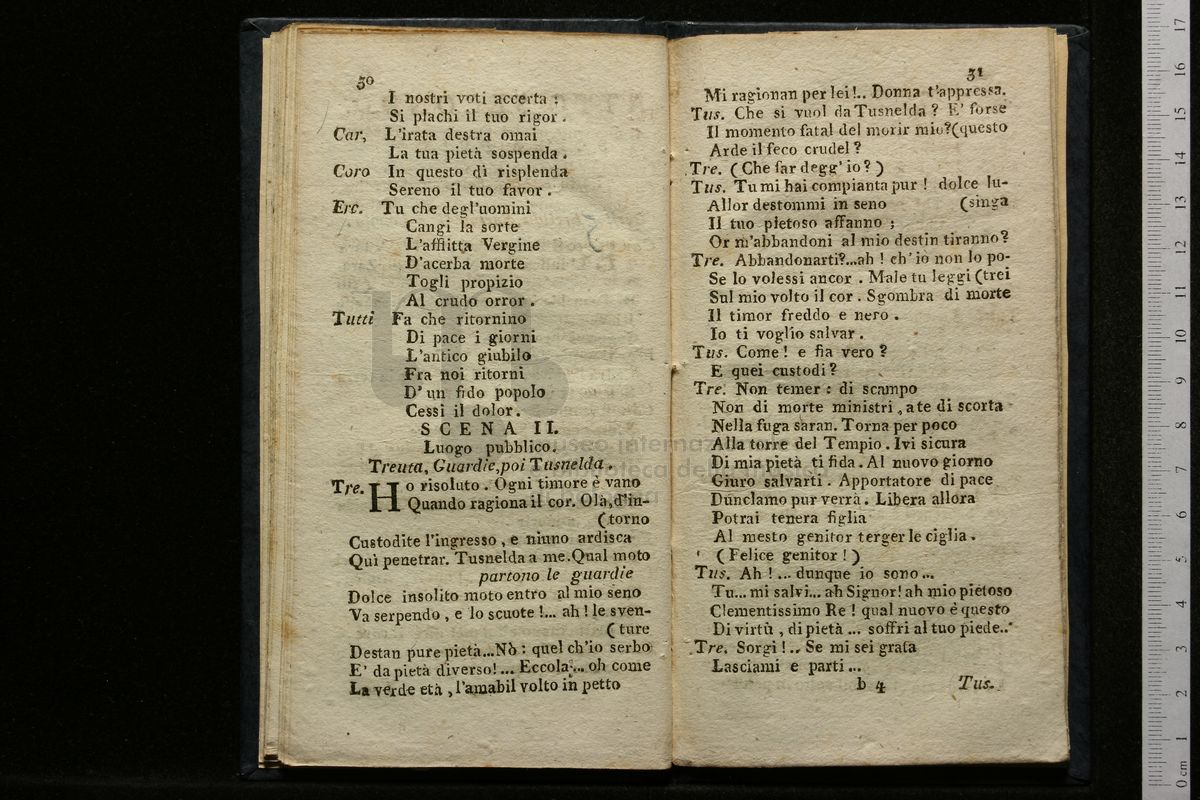 30
I nostri voti accerta :
Si plachi il tuo rigor .
Car, L'irata destra omai
La tua pietà sospenda .
Coro In questo dì risplenda
Sereno il tuo favor .
Erc. Tu che degl'uomini
Cangi la sorte
L'afflitta Vergine
D'acerba morte
Togli propizio
Al crudo orror .
Tutti Fa che ritornino
Di pace i giorni
L'antico giubilo
Fra noi ritorni
D' un fido popolo
Cessi il dolor .
SCENA II.
Luogo pubblico.
Treuta, Guardie, poi Tusnelda .
Tre. Ho risoluto . Ogni timore è vano
Quando ragiona il cor. Olà, d'in-
(torno
Custodite l'ingresso , e niuno ardisca
Quì penetrar. Tusnelda a me. Qual moto
partono le guardie
Dolce insolito moto entro al mio seno
Va serpendo , e lo scuote !... ah ! le sven-
(ture
Destan pure pietà...Nò : quel ch'io serbo
E' da pietà diverso! ... Eccola ... oh come
La verde età , l'amabil volto in petto
31
Mi ragionan per lei !.. Donna t'appressa.
Tus. Che si vuol da Tusnelda ? E' forse
Il momento fatal del morir mio?(questo
Arde il feco crudel ?
Tre. ( Che far degg' io ? )
Tus. Tu mi hai compianta pur ! dolce lu-
Allor destommi in seno (singa
Il tuo pietoso affanno ;
Or m'abbandoni al mio destin tiranno?
Tre. Abbandonarti?...ah ! ch' io non lo po-
Se lo volessi ancor . Male tu leggi (trei
Sul mio volto il cor . Sgombra di morte
Il timor freddo e nero .
Io ti voglio salvar .
Tus. Come ! e fia vero ?
E quei custodi ?
Tre. Non temer : di scampo
Non di morte ministri , a te di scorta
Nella fuga saran. Torna per poco
Alla torre del Tempio . Ivi sicura
Di mia pietà ti fida . Al nuovo giorno
Giuro salvarti . Apportatore di pace
Dunclamo pur verrà . Libera allora
Potrai tenera figlia
Al mesto genitor terger le ciglia .
( Felice genitor ! )
Tus. Ah ! ... dunque io sono ...
Tu... mi salvi... ah Signor! ah mio pietoso
Clementissimo Re ! qual nuovo è questo
Di virtù , di pietà ... soffri al tuo piede..
Tre. Sorgi ! .. Se mi sei grata
Lasciami e parti ...
b 4 Tus.
museo internaz
oteca della
17
16
15
14
13
12
11
10
9
8
7
6
5
4
3
2
1
0 cm